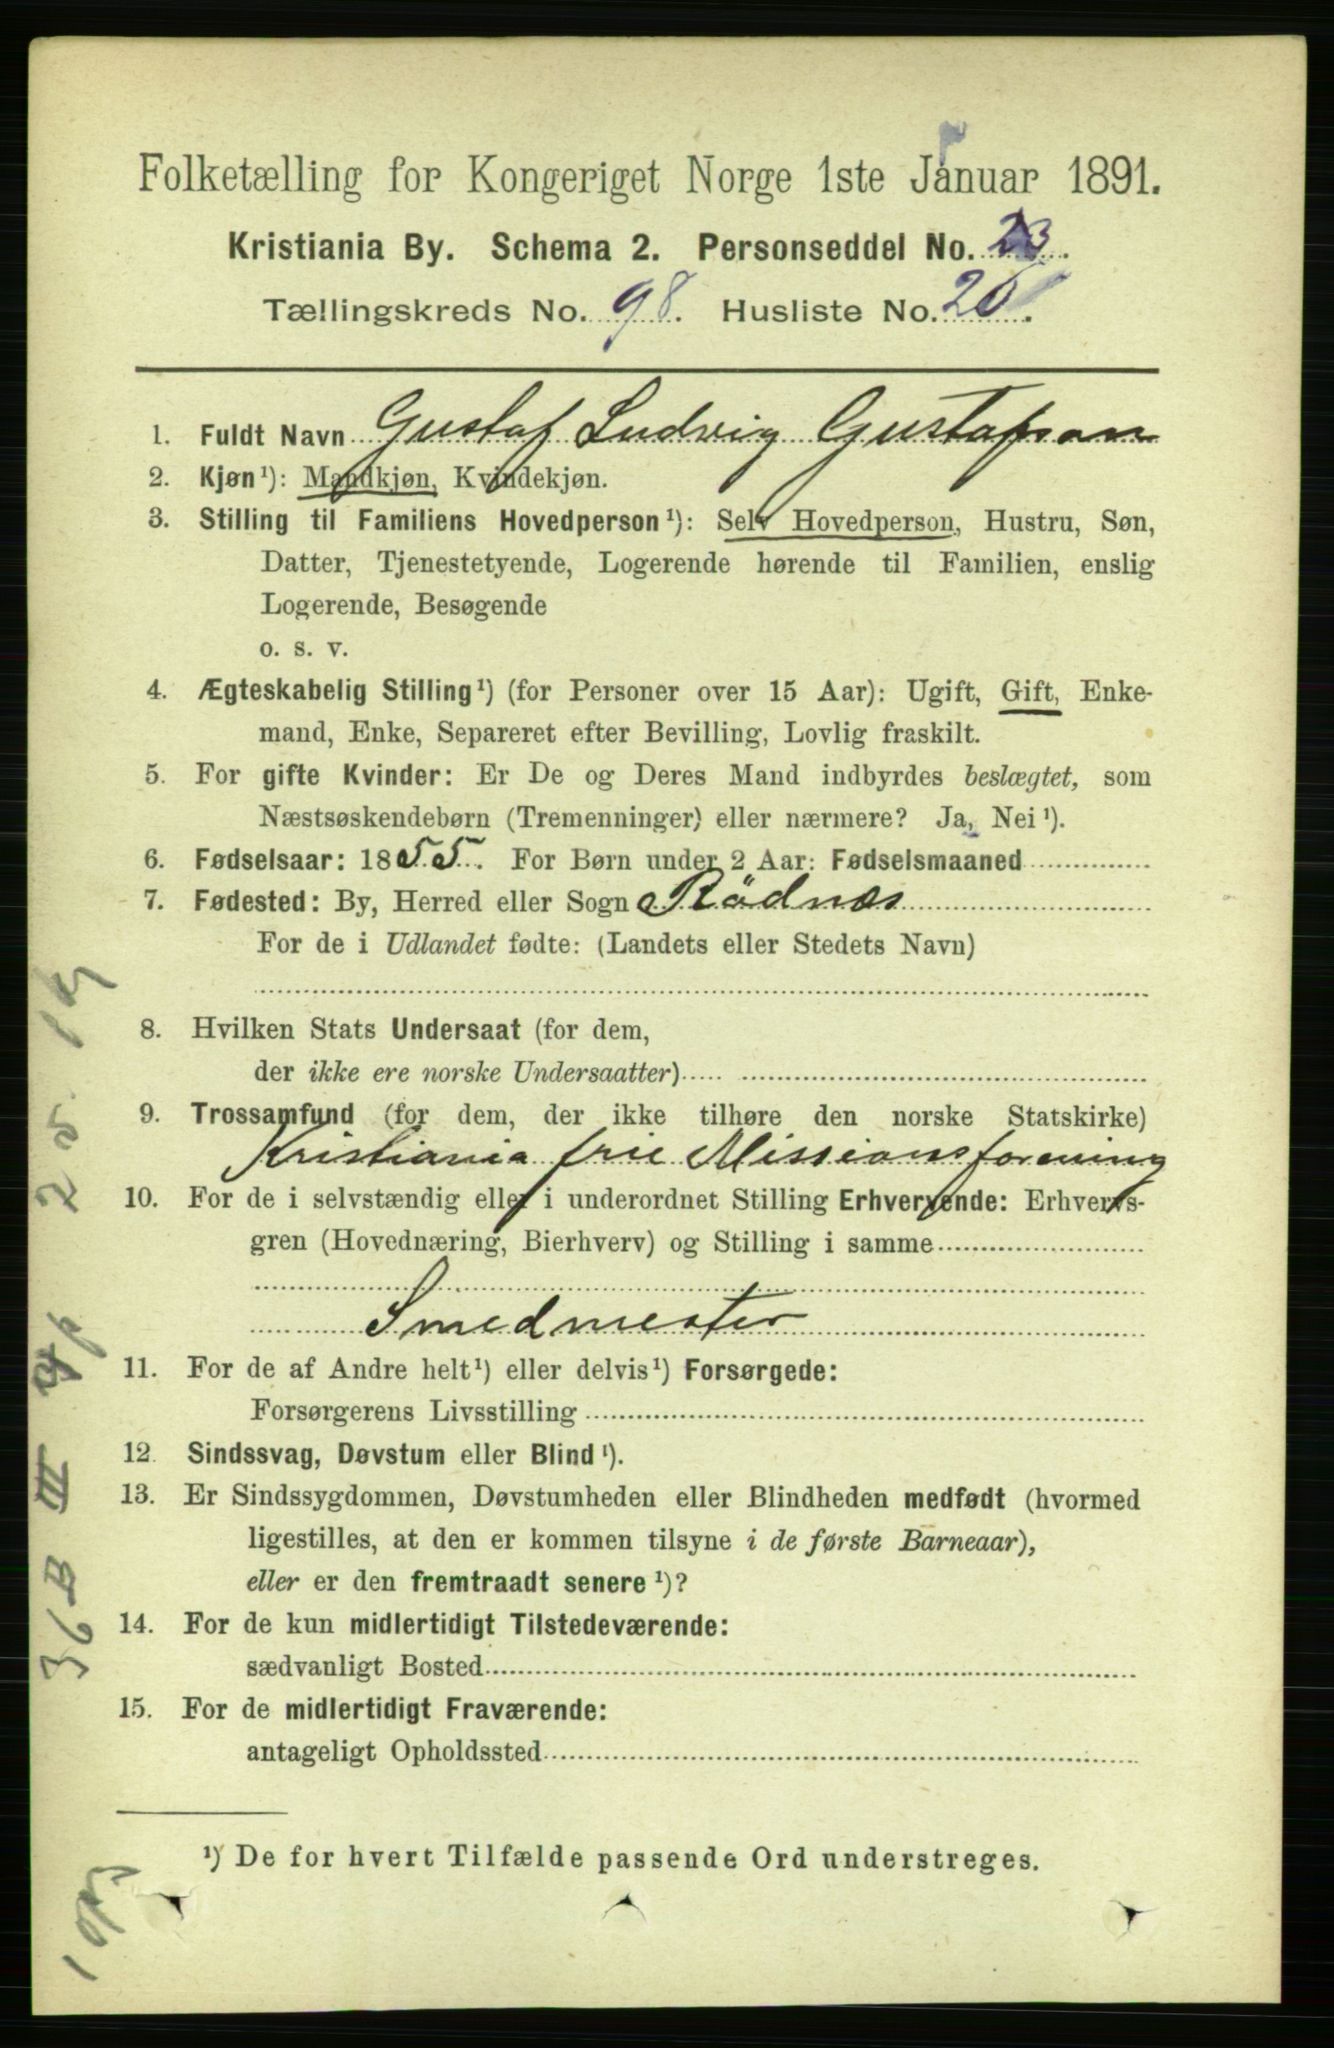 Folketælling for Kongeriget Norge 1ste Januar 1891.
Kristiania By. Schema 2. Personseddel No. 23.
Tællingskreds No. 98. Husliste No. 20.
1. Fuldt Navn Gustaf Ludvig Gustafson
2. Kjøn¹): Mandkjøn, Kvindekjøn.
3. Stilling til Familiens Hovedperson¹): Selv Hovedperson, Hustru, Søn,
Datter, Tjenestetyende, Logerende hørende til Familien, enslig
Logerende, Besøgende
o. s. v.
4. Ægteskabelig Stilling¹) (for Personer over 15 Aar): Ugift, Gift, Enke-
mand, Enke, Separeret efter Bevilling, Lovlig fraskilt.
5. For gifte Kvinder: Er De og Deres Mand indbyrdes beslægtet, som
Næstsøskendebørn (Tremenninger) eller nærmere? Ja, Nei¹).
6. Fødselsaar: 1855. For Børn under 2 Aar: Fødselsmaaned
7. Fødested: By, Herred eller Sogn Rödnæs
For de i Udlandet fødte: (Landets eller Stedets Navn)
8. Hvilken Stats Undersaat (for dem,
der ikke ere norske Undersaatter)
9. Trossamfund (for dem, der ikke tilhøre den norske Statskirke)
Kristiania frie Missionsforening
10. For de i selvstændig eller i underordnet Stilling Erhvervende: Erhvervs-
gren (Hovednæring, Bierhverv) og Stilling i samme
Smedmester
11. For de af Andre helt¹) eller delvis¹) Forsørgede:
Forsørgerens Livsstilling
12. Sindssvag, Døvstum eller Blind¹).
13. Er Sindssygdommen, Døvstumheden eller Blindheden medfødt (hvormed
ligestilles, at den er kommen tilsyne i de første Barneaar),
eller er den fremtraadt senere¹)?
14. For de kun midlertidigt Tilstedeværende:
sædvanligt Bosted
15. For de midlertidigt Fraværende:
antageligt Opholdssted
¹) De for hvert Tilfælde passende Ord understreges.
36 B III